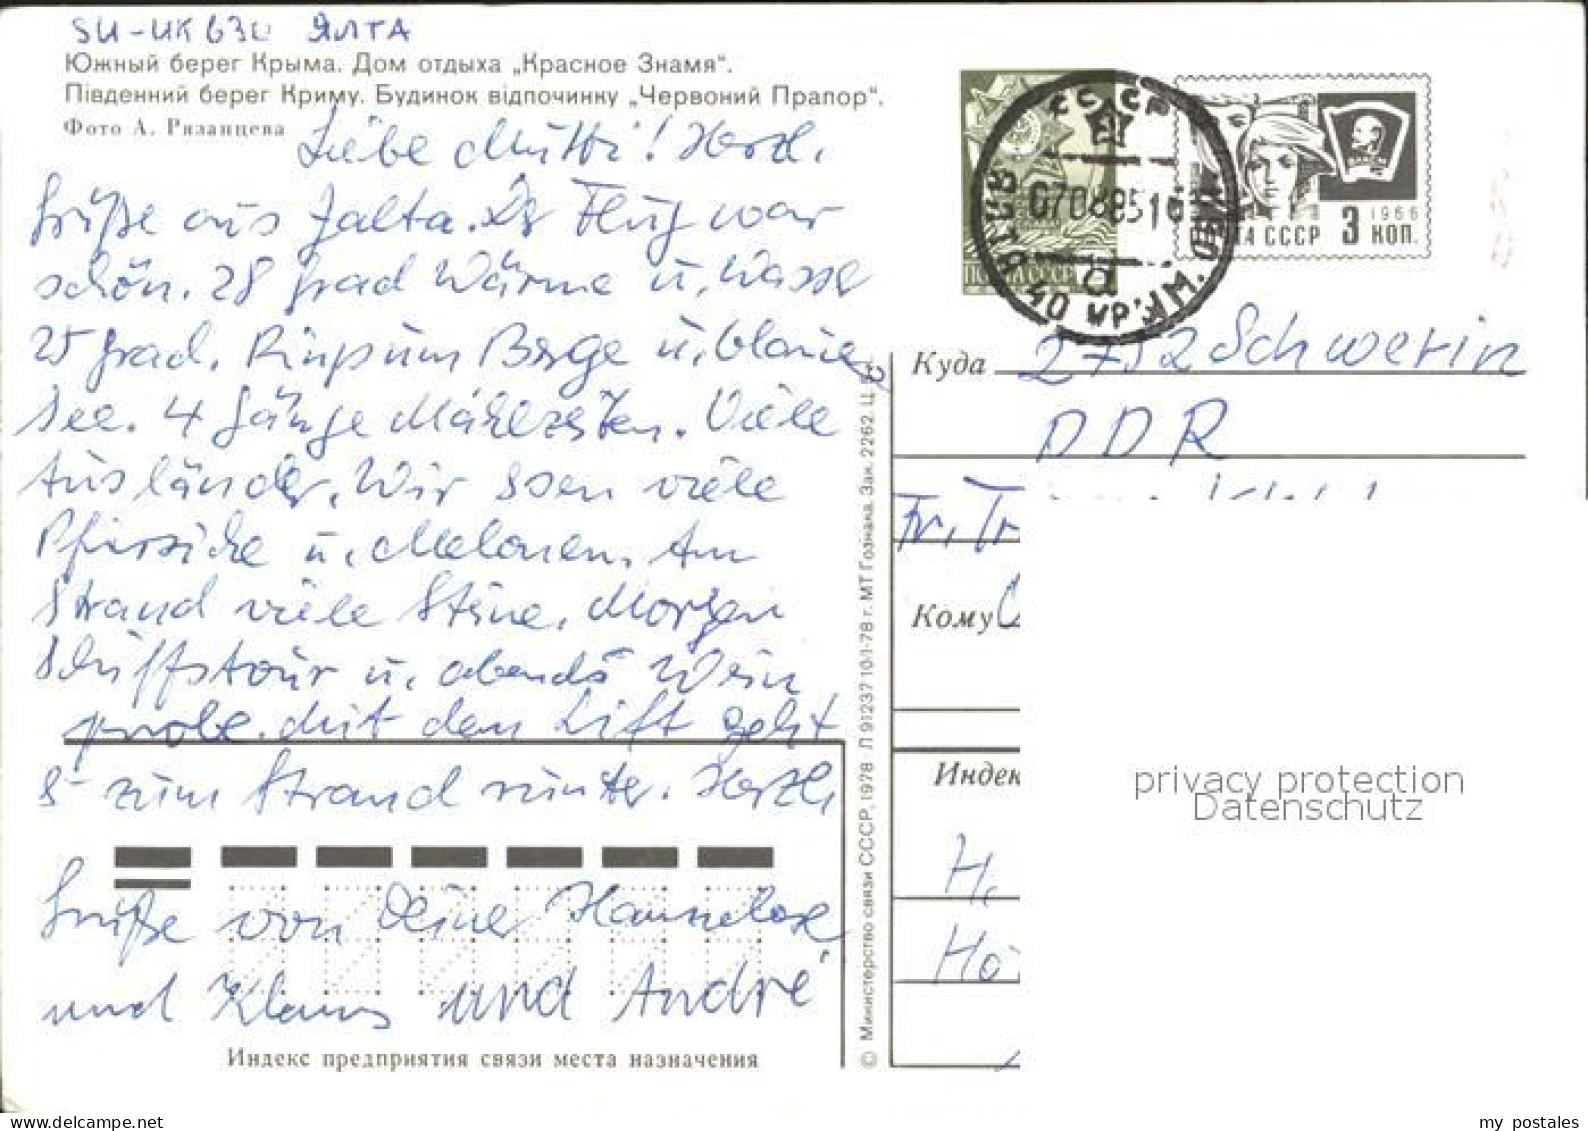 SU-UK630 ЯЛТА
Южный берег Крыма. Дом отдыха „Красное Знамя“.
Південний берег Криму. Будинок відпочинку „Червоний Прапор“.
Фото А. Рязанцева
Liebe Mutti! Herzl.
Grüße aus Jalta. Der Flug war
schön. 28 Grad Wärme u. Wasser
25 Grad. Ringsum Berge u. blauer
See. 4 Gänge Mahlzeiten. Viele
Ausländer. Wir essen viele
Pfirsiche u. Melonen. Am
Strand viele Steine. Morgen
Schiffstour u. abends Wein
probe. Mit dem Lift geht
es zum Strand runter. Herzli
Grüße von Deiner Hannelore
und Klaus und André
Индекс предприятия связи места назначения
© Министерство связи СССР, 1978 Л 91237 10/I-78 г. МТ Гознака. Зак. 2262. Ц.
ПОЧТА СССР
СССР
ЯЛТА 40 КР
1966
ПОЧТА СССР 3 КОП.
Куда 2752 Schwerin
DDR
Fr. Tr
Кому
Индек
H.
Ho
privacy protection
Datenschutz
my postales